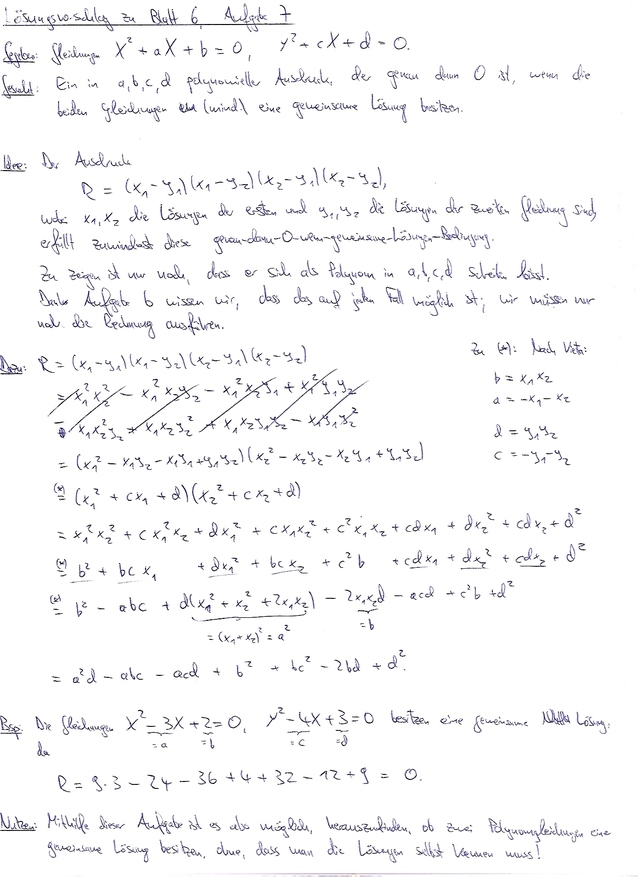 Lösungsvorschlag zu Blatt 6, Aufgabe 7
Gegeben: Gleichungen X² + aX + b = 0, Y² + cX + d = 0.
Gesucht: Ein in a, b, c, d polynomieller Ausdruck, der genau dann 0 ist, wenn die
beiden Gleichungen (mind.) eine gemeinsame Lösung besitzen.
Idee: Der Ausdruck
R = (x₁-y₁)(x₁-y₂)(x₂-y₁)(x₂-y₂),
wobei x₁, x₂ die Lösungen der ersten und y₁, y₂ die Lösungen der zweiten Gleichung sind,
erfüllt zumindest diese genau-dann-0-wenn-gemeinsame-Lösungen-Bedingung.
Zu zeigen ist nur noch, dass er sich als Polynom in a, b, c, d schreiben lässt.
Dank Aufgabe 6 wissen wir, dass das auf jeden Fall möglich ist; wir müssen nur
noch die Rechnung ausführen.
Dazu: R = (x₁-y₁)(x₁-y₂)(x₂-y₁)(x₂-y₂)
= x₁²x₂² - x₁²x₂y₂ - x₁²x₂y₁ + x₁²y₁y₂
x₁x₂²y₂ + x₁x₂y₂² + x₁x₂y₁y₂ - x₁y₁y₂²
= (x₁² - x₁y₂ - x₁y₁ + y₁y₂)(x₂² - x₂y₂ - x₂y₁ + y₁y₂)
(*) = (x₁² + cx₁ + d)(x₂² + cx₂ + d)
= x₁²x₂² + cx₁²x₂ + dx₁² + cx₁x₂² + c²x₁x₂ + cdx₁ + dx₂² + cdx₂ + d²
(*) = b² + bcx₁ + dx₁² + bcx₂ + c²b + cdx₁ + dx₂² + cdx₂ + d²
(*) = b² - abc + d(x₁² + x₂² + 2x₁x₂) - 2x₁x₂d - acd + c²b + d²
= (x₁+x₂)² = a²
= b
= a²d - abc - acd + b² + bc² - 2bd + d².
Zu (*): Nach Vieta:
b = x₁x₂
a = -x₁-x₂
d = y₁y₂
c = -y₁-y₂
Bsp: Die Gleichungen X² - 3X + 2 = 0, Y² - 4X + 3 = 0 besitzen eine gemeinsame Lösung,
= a = b = c = d
da
R = 9·3 - 24 - 36 + 4 + 32 - 12 + 9 = 0.
Nutzen: Mithilfe dieser Aufgabe ist es also möglich, herauszufinden, ob zwei Polynomgleichungen eine
gemeinsame Lösung besitzen, ohne, dass man die Lösungen selbst kennen muss!